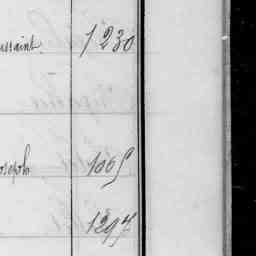 ussaint. 1230
oseph 1065
1297